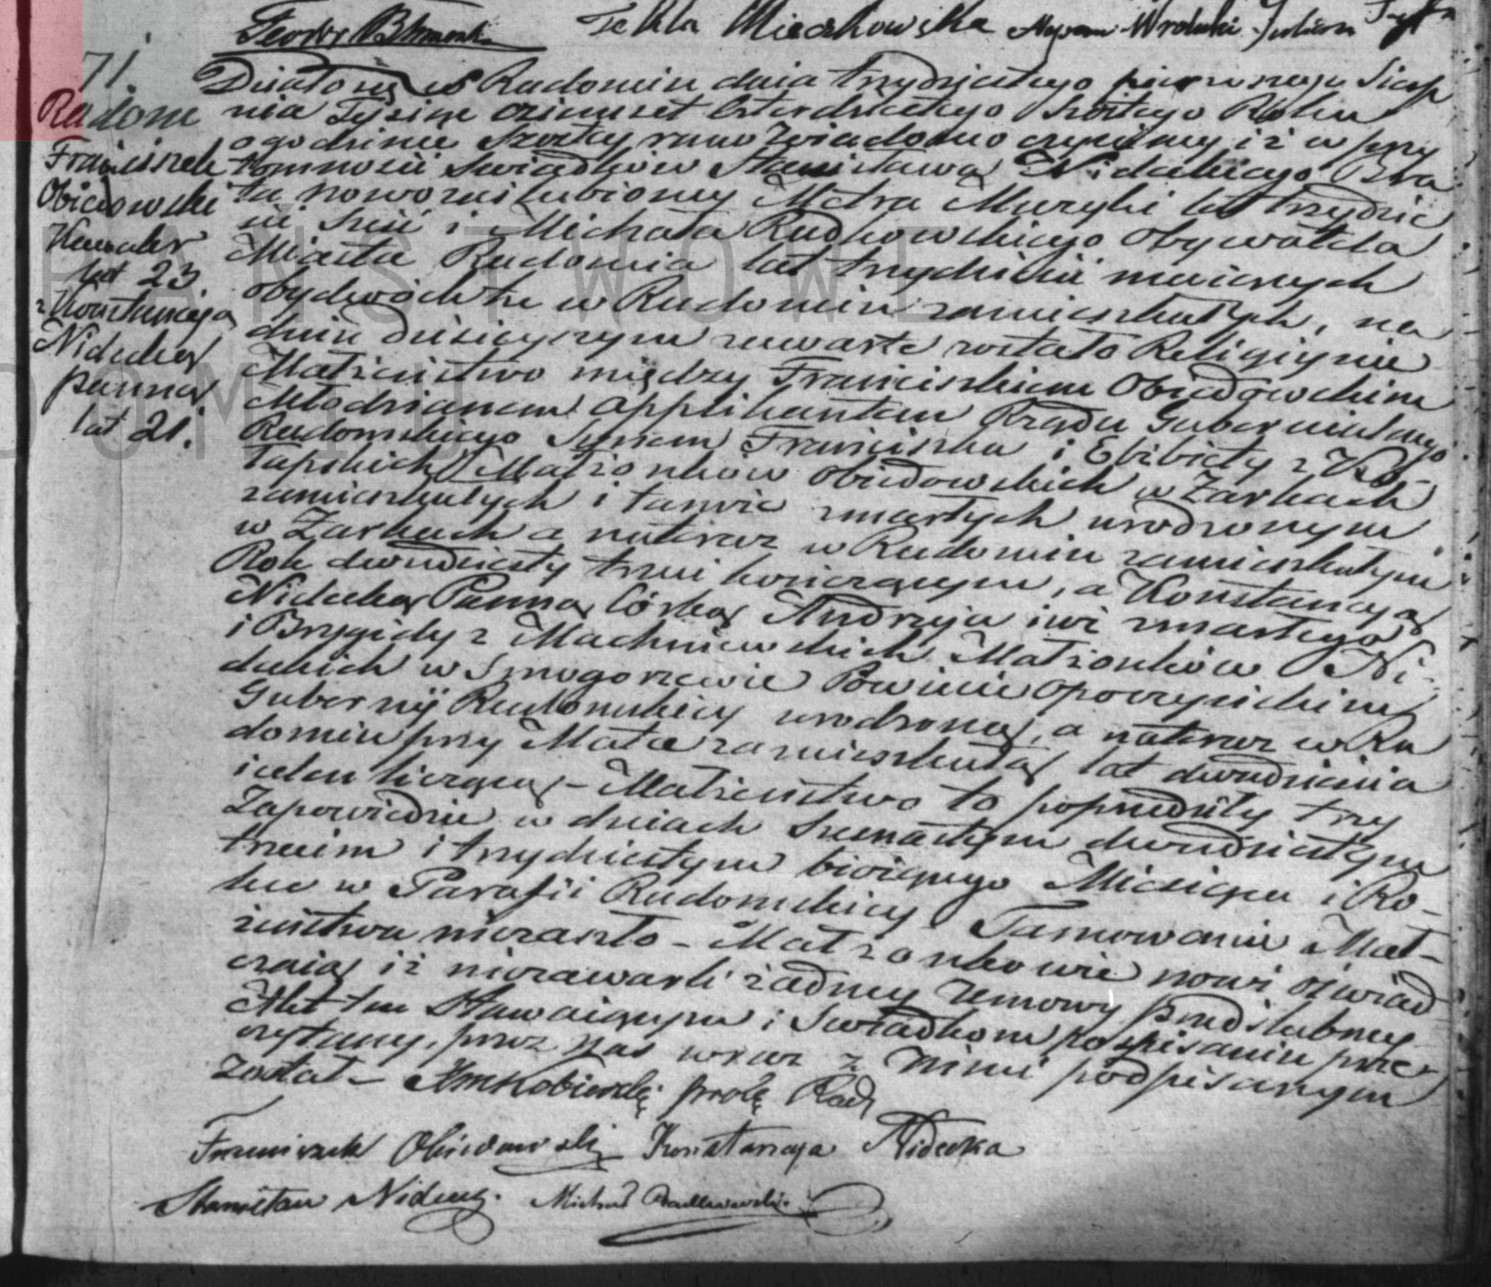 Teodor Tekla Mieczkowska
71.
Radom
Franciszek
Obidowski
Kawaler
lat 23.
z Konstancyą
Nidecką
panną
lat 21.
Działo się w Radomiu dnia trzydziestego pierwszego Sierp
nia Tysiąc ośmset czterdziestego szóstego Roku
o godzinie szóstey rano Wiadomo czynimy iż w przy
tomności świadków Stanisława Nideckiego Bra
ta nowozaślubioney Metra Muzyki lat trzydzie
ści sześć i Michała Radkowskiego Obywatela
Miasta Radomia lat trzydzieści maiących
obydwóch tu w Radomiu zamieszkałych, na
dniu dzisieyszym zawarte zostało Religiynie
Małżeństwo między Franciszkiem Obidowskim
Młodzianem Applikantem Rządu Gubernialnego
Radomskiego Synem Franciszka i Elżbiety z
Małżonków Obidowskich w Żarkach
zamieszkałych i tamże zmarłych urodzonym
w Żarkach a na teraz w Radomiu zamieszkałym
Rok dwudziesty trzeci liczącym, a Konstancyą
Nidecką Panną Córką Andrzeja iuż zmarłego
i Brygidy z Machniewskich Małżonków Ni-
deckich w Smogorzewie Powiecie Opoczyńskim
Gubernii Radomskiey urodzoną, a na teraz w Ra
domiu przy Matce zamieszkałą lat dwadzieścia
ieden liczącą - Małżeństwo to poprzedziły trzy
Zapowiedzie w dniach szesnastym dwudziestym
trzecim i trzydziestym bieżącego Miesiąca i Ro-
ku w Parafii Radomskiey Tamowanie Mał-
żeństwa niezaszło - Małżonkowie nowi oświad
czaią iż niezawarli żadney Umowy przedślubney
Akt ten Stawaiącym i Świadkom po spisaniu prze
czytany, przez nas wraz z niemi podpisanym
Został -
Franciszek Obidowski Konstancya Nidecka
Stanisław Nidecki. Michał Radkowski